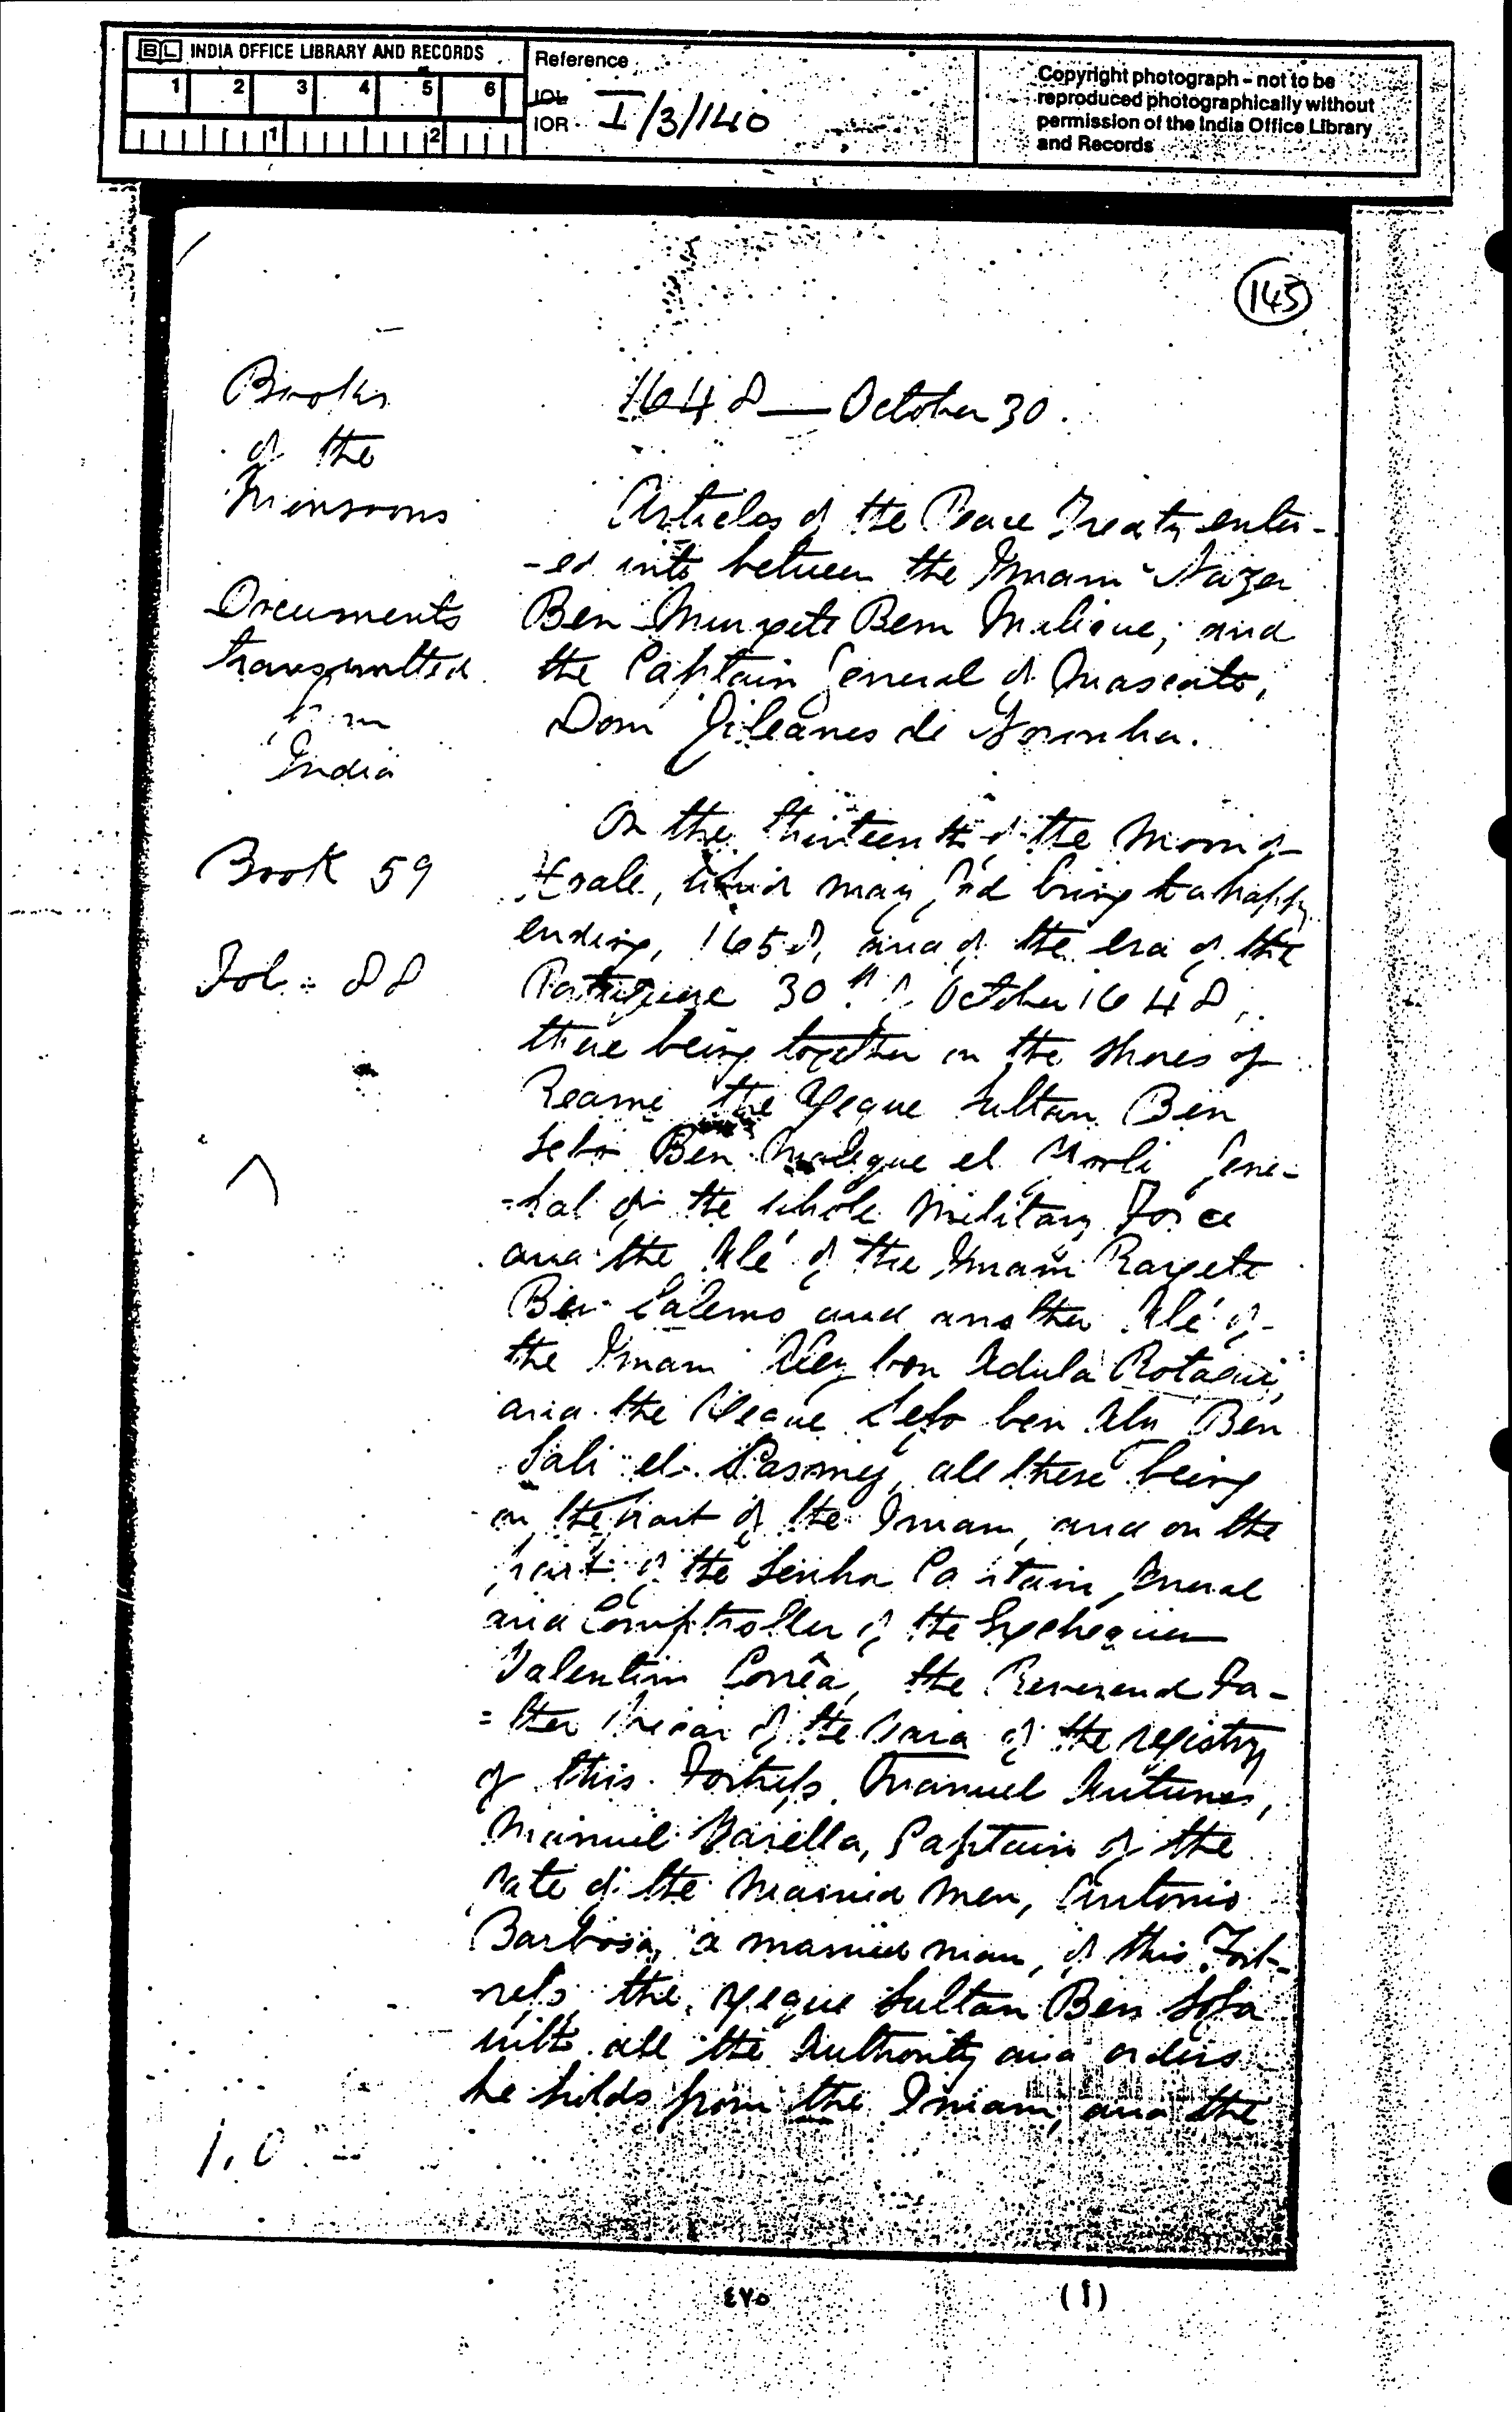 BL INDIA OFFICE LIBRARY AND RECORDS
1 2 3 4 5 6
1 2
Reference
IOL
IOR I/3/140
Copyright photograph - not to be
reproduced photographically without
permission of the India Office Library
and Records
145
Books
of the
Monsoons
Documents
transmitted
from
India
Book 59
Fol: 88
1648 — October 30.
Articles of the Peace Treaty enter-
-ed into between the Imam Nazer
Ben Murgete Bem Malique, and
the Captain General of Mascate,
Dom Gileanes de Noronha.
On the thirteenth of the Moon of
which may God bring to a happy
ending, 1658, and of the era of the
Portuguese 30th of October 1648,
there being together on the shores of
Reame the Xeque Sultan Ben
Sefo Ben Maleque el Gene-
-ral of the whole Military Force
and the Alé of the Imam Rargete
Ben Salemo and another Alé of
the Imam ben Adula Rotaqui,
and the Xeque Sefo ben Ben
Sali el all these being
on the part of the Imam, and on the
part of the Senhor Captain General
and Comptroller of the Exchequer
Valentim Corrêa, the Reverend Fa-
=ther Vicar of the Vara of the registry
of this Fortress, Manuel Antunes,
Manuel Varella, Captain of the
gate of the Married Men, Antonio
Barbosa, a married man, of this Fort-
ress, the Xeque Sultan Ben Sefa
with all the Authority and orders
he holds from the Imam, and the
1.0
٤٧٥
(١)